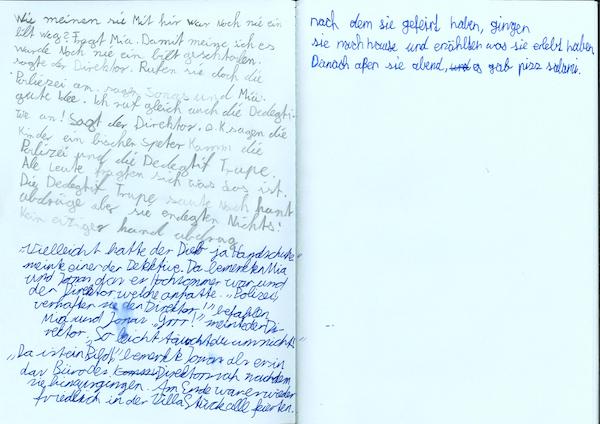 Wie meinen sie Mit hir war noch nie ein
bilt weg? Fragt Mia. Damit meine ich es
wurde Noch nie ein bilt geschtolen.
sagte der Direktor. Rufen sie doch die
Polizei an. sagen Jonas und Mia.
gute Idee. Ich ruf gleich auch die Dedegti-
ve an! Sagt der Direktor. O.K sagen die
Kinder ein bischen speter Kamm die
Polizei und die Dedegtif Trupe.
Ale Leute fragten sich was los ist.
Die Dedegtif Trupe saute Nach hant
abdrüge aber sie endegten Nichts!
Kein einziger hand abdrag
„Vielleicht hatte der Dieb ja Handschuhe"
meinte einer der Detektive. Da bemerkten Mia
und Jonas das es Hochsommer war und
der Direktor welche anhatte. „Polizei
verhaften sie den Direktor!" befahlen
Mia und Jonas. „Grrr!" meinte der Di-
rektor. „So leicht täuscht du um nicht!"
„Da ist ein Bild!", bemerkte Jonas als er in
das Büro des Direktors sah nachdem
sie hinausgingen. Am Ende war es wieder
friedlich in der Villa Stuck alle feierten.
nach dem sie gefeirt haben, gingen
sie nachhause und erzählten was sie erlebt haben
Danach aßen sie abend, und es gab pizz salami.